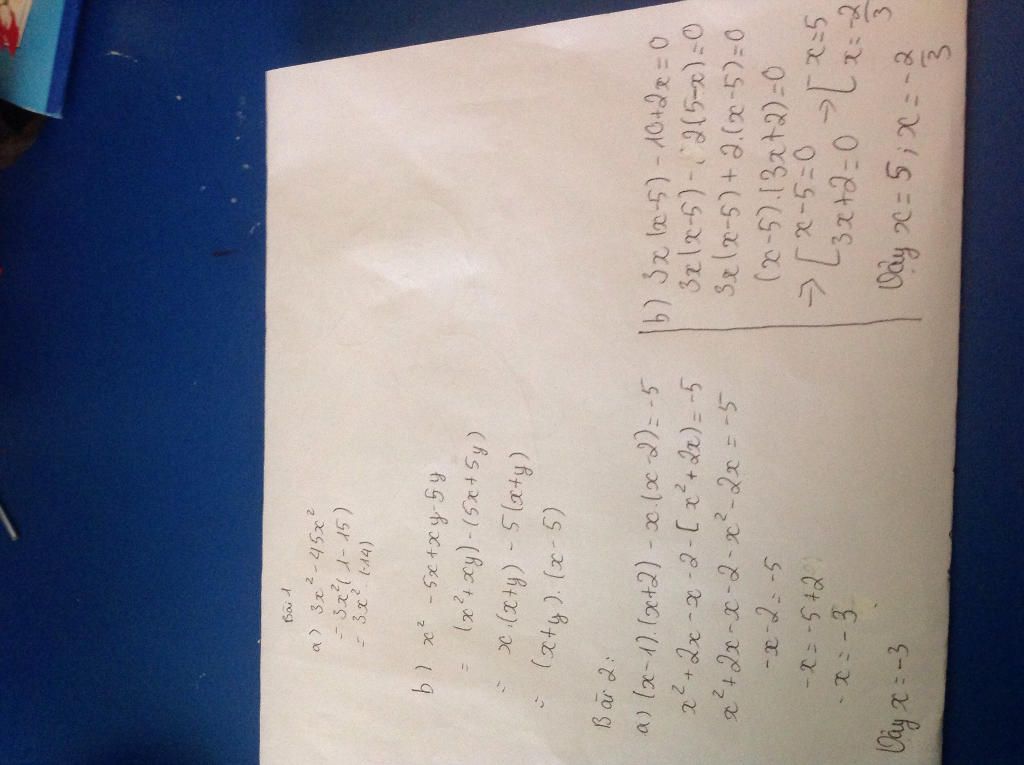 Bài 1
a) 3x² - 45x²
= 3x²(1 - 15)
= 3x² . (14)
b) x² - 5x + xy - 5y
= (x² + xy) - (5x + 5y)
= x.(x+y) - 5(x+y)
= (x+y).(x-5)
Bài 2:
a) (x-1).(x+2) - x.(x-2) = -5
x² + 2x - x - 2 - (x² + 2x) = -5
x² + 2x - x - 2 - x² - 2x = -5
-x - 2 = -5
-x = -5 + 2
-x = -3
Vậy x = -3
b) 3x(x-5) - 10 + 2x = 0
3x(x-5) - 2(5-x) = 0
3x(x-5) + 2.(x-5) = 0
(x-5).(3x+2) = 0
=> [ x-5=0
[ 3x+2=0 -> [ x=5
[ x=-2/3
Vậy x = 5 ; x = -2/3